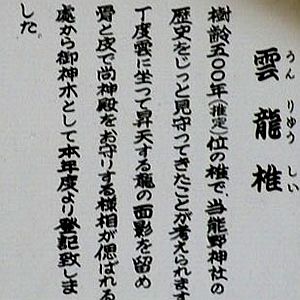 雲龍椎
うんりゅうしい
樹齢五〇〇年(推定)位の椎で、当熊野神社の
歴史をじっと見守ってきたことが考えられます
丁度雲に坐って昇天する龍の面影を留め
骨と皮で尚神殿をお守りする様相が偲ばれる
處から御神木として本年度より登記致しま
した。